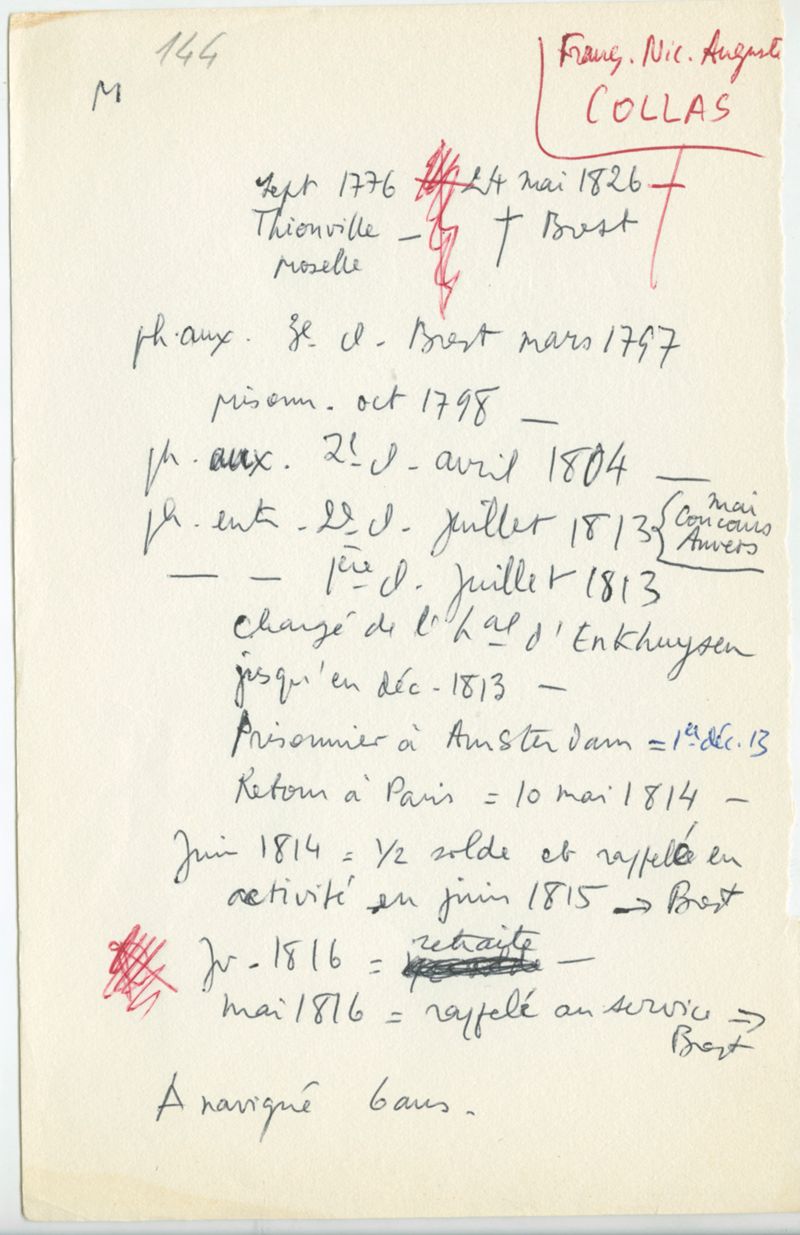 144
M
Franç. Nic. Auguste
COLLAS
Sept 1776 24 mai 1826
Thionville — † Brest
Moselle
ph. aux. 3e cl. Brest mars 1797
prisonn. oct 1798 —
ph. aux. 2e cl. avril 1804 —
ph. entr. 2e cl. juillet 1813 { mai
Concours
Anvers
— — 1ère cl. juillet 1813
chargé de l'hal d'Enkhuysen
jusqu'en déc. 1813 —
Prisonnier à Amsterdam = 1er déc. 13
Retour à Paris = 10 mai 1814 —
Juin 1814 = 1/2 solde et rappelé en
activité en juin 1815 → Brest
Jv. 1816 = retraite —
mai 1816 = rappelé au service →
Brest
A navigué 6 ans.